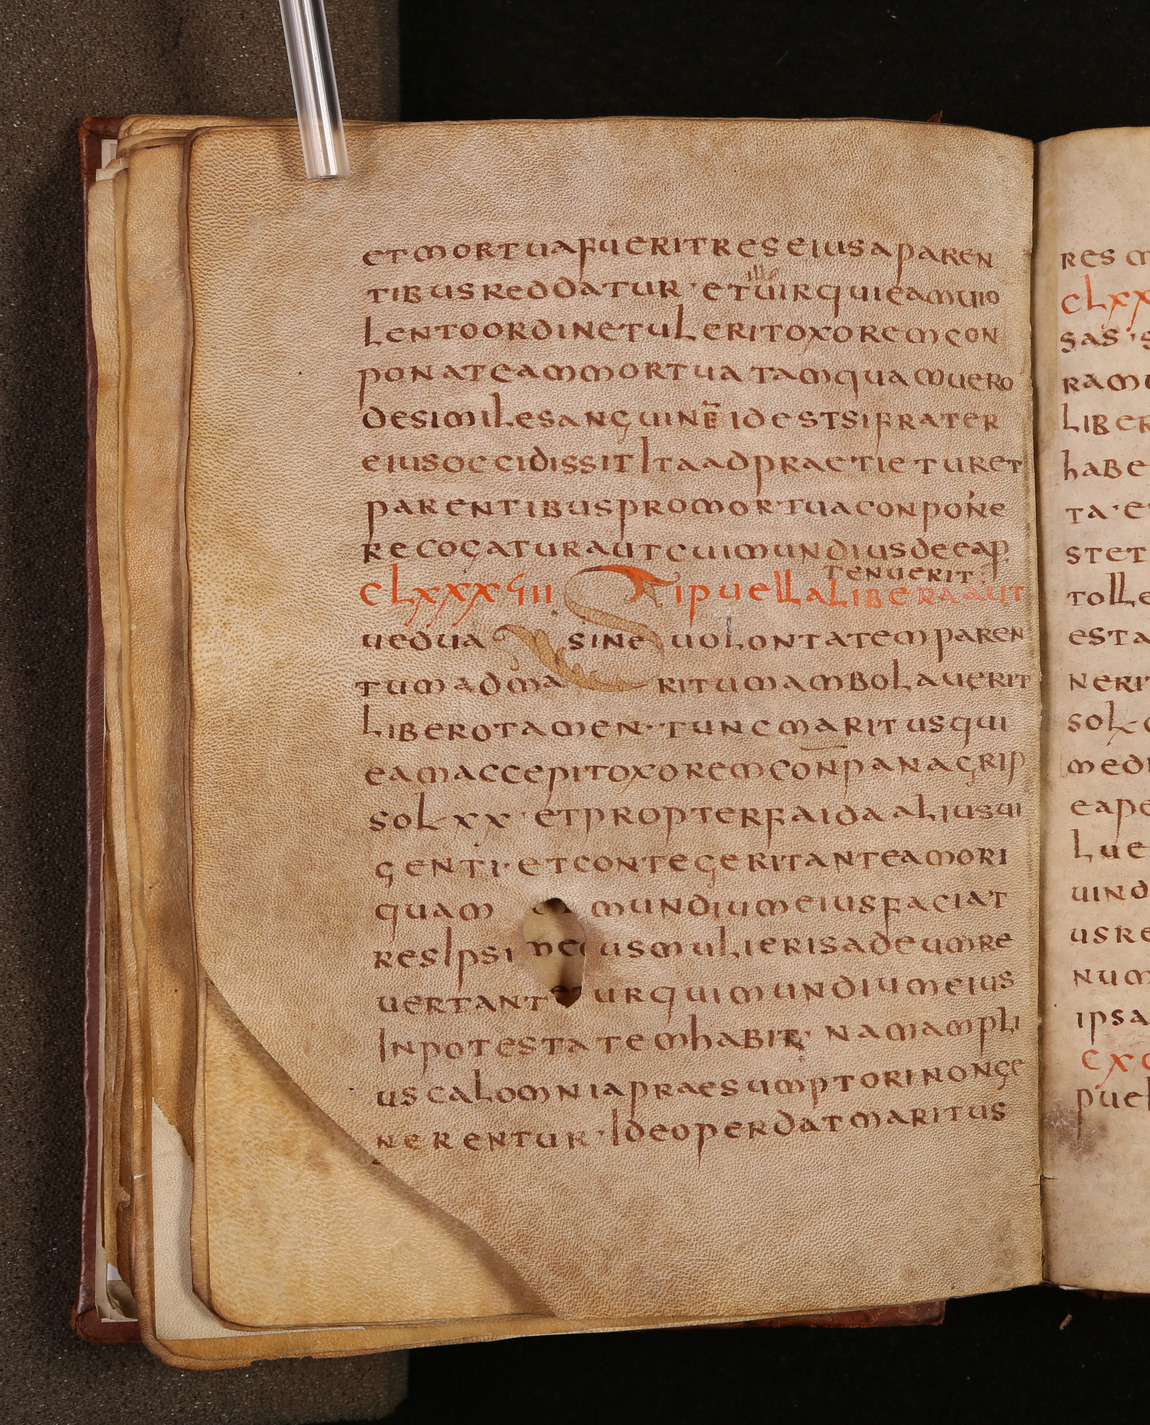 etmortuafueritreseiusaparen
tibusreddatur·etuirquieamuio
lentoordinetuleritoxoremcon
ponateammortuatamquamuero
desimilesanguinē idestsifrater
eiusoccidissit Itaadpraetieturet
parentibusPromortuaconpone
recogaturautcuimundiusdeeap
tenuerit:
clxxxuiii Sipuellaliberaaut
uedua sine uolontatemparen
tumadma ritumambolauerit
liberotamen·tuncmaritusqui
eamaccepitoxoremconpanagrip
sol xx·etpropterfaidaaliusui
genti·etcontegeritanteamori
quam mundiumeiusfaciat
resIpsi usmulierisadeumre
uertant urquimundiumeius
Inpotestatemhabit· namampli
uscalomniapraesumptorinonge
nerentur·Ideoperdatmaritus
res
clxx
sas·s
ramu
liber
habe
ta·e
stet
tolle
esta
neri
sol
medi
eape
lue
uind
usre
num
ipsa
cxc
puel